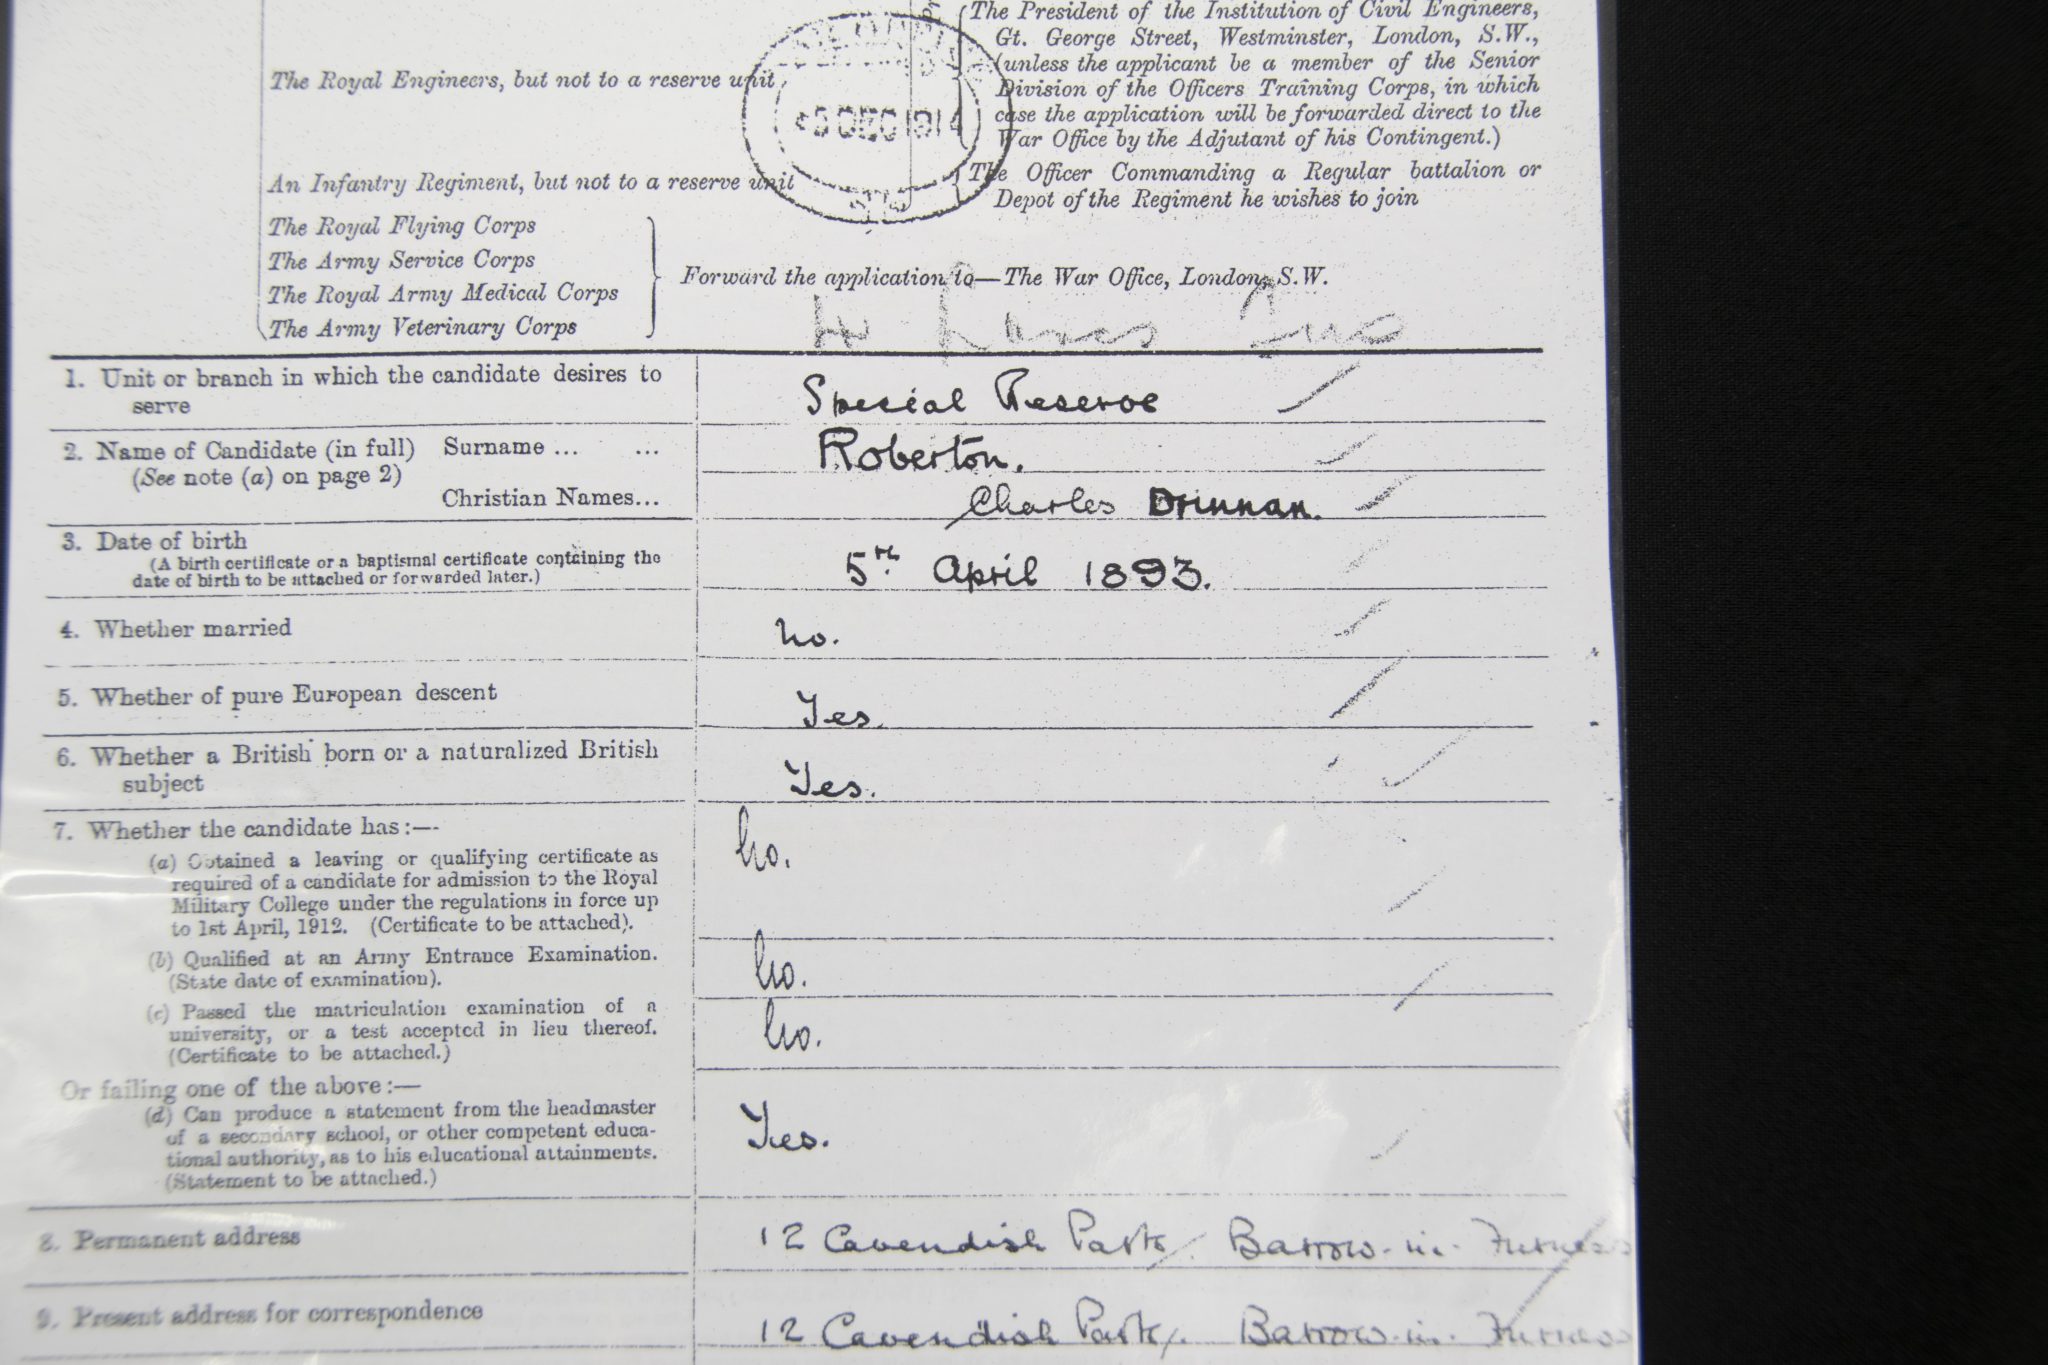 The President of the Institution of Civil Engineers,
Gt. George Street, Westminster, London, S.W.,
(unless the applicant be a member of the Senior
The Royal Engineers, but not to a reserve unit
Division of the Officers Training Corps, in which
case the application will be forwarded direct to the
War Office by the Adjutant of his Contingent.)
5 DEC 1914
An Infantry Regiment, but not to a reserve unit
The Officer Commanding a Regular battalion or
Depot of the Regiment he wishes to join
The Royal Flying Corps
The Army Service Corps
The Royal Army Medical Corps
The Army Veterinary Corps
Forward the application to—The War Office, London, S.W.
1. Unit or branch in which the candidate desires to
serve
Special Reserve
2. Name of Candidate (in full) Surname ... ...
(See note (a) on page 2)
Roberton.
Christian Names...
Charles Drinnan.
3. Date of birth
(A birth certificate or a baptismal certificate containing the
date of birth to be attached or forwarded later.)
5th April 1893.
4. Whether married
No.
5. Whether of pure European descent
Yes.
6. Whether a British born or a naturalized British
subject
Yes.
7. Whether the candidate has:—
(a) Obtained a leaving or qualifying certificate as
required of a candidate for admission to the Royal
Military College under the regulations in force up
to 1st April, 1912. (Certificate to be attached).
No.
(b) Qualified at an Army Entrance Examination.
(State date of examination).
No.
(c) Passed the matriculation examination of a
university, or a test accepted in lieu thereof.
(Certificate to be attached.)
No.
Or failing one of the above:—
(d) Can produce a statement from the headmaster
of a secondary school, or other competent educa-
tional authority, as to his educational attainments.
(Statement to be attached.)
Yes.
8. Permanent address
12 Cavendish Park, Barrow-in-Furness
9. Present address for correspondence
12 Cavendish Park, Barrow-in-Furness